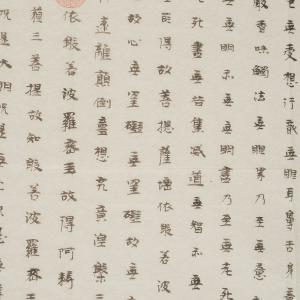 受想行識無眼耳鼻舌身意
聲香味觸法無眼界乃至無意
無無明亦無無明盡乃至無老死
死盡無苦集滅道無智亦無
所得故菩提薩埵依般若波
故心無罣礙無罣礙故
遠離顛倒夢想究竟涅槃三
依般若波羅蜜多故得阿耨
藐三菩提故知般若波羅蜜
是大明咒是無上咒是